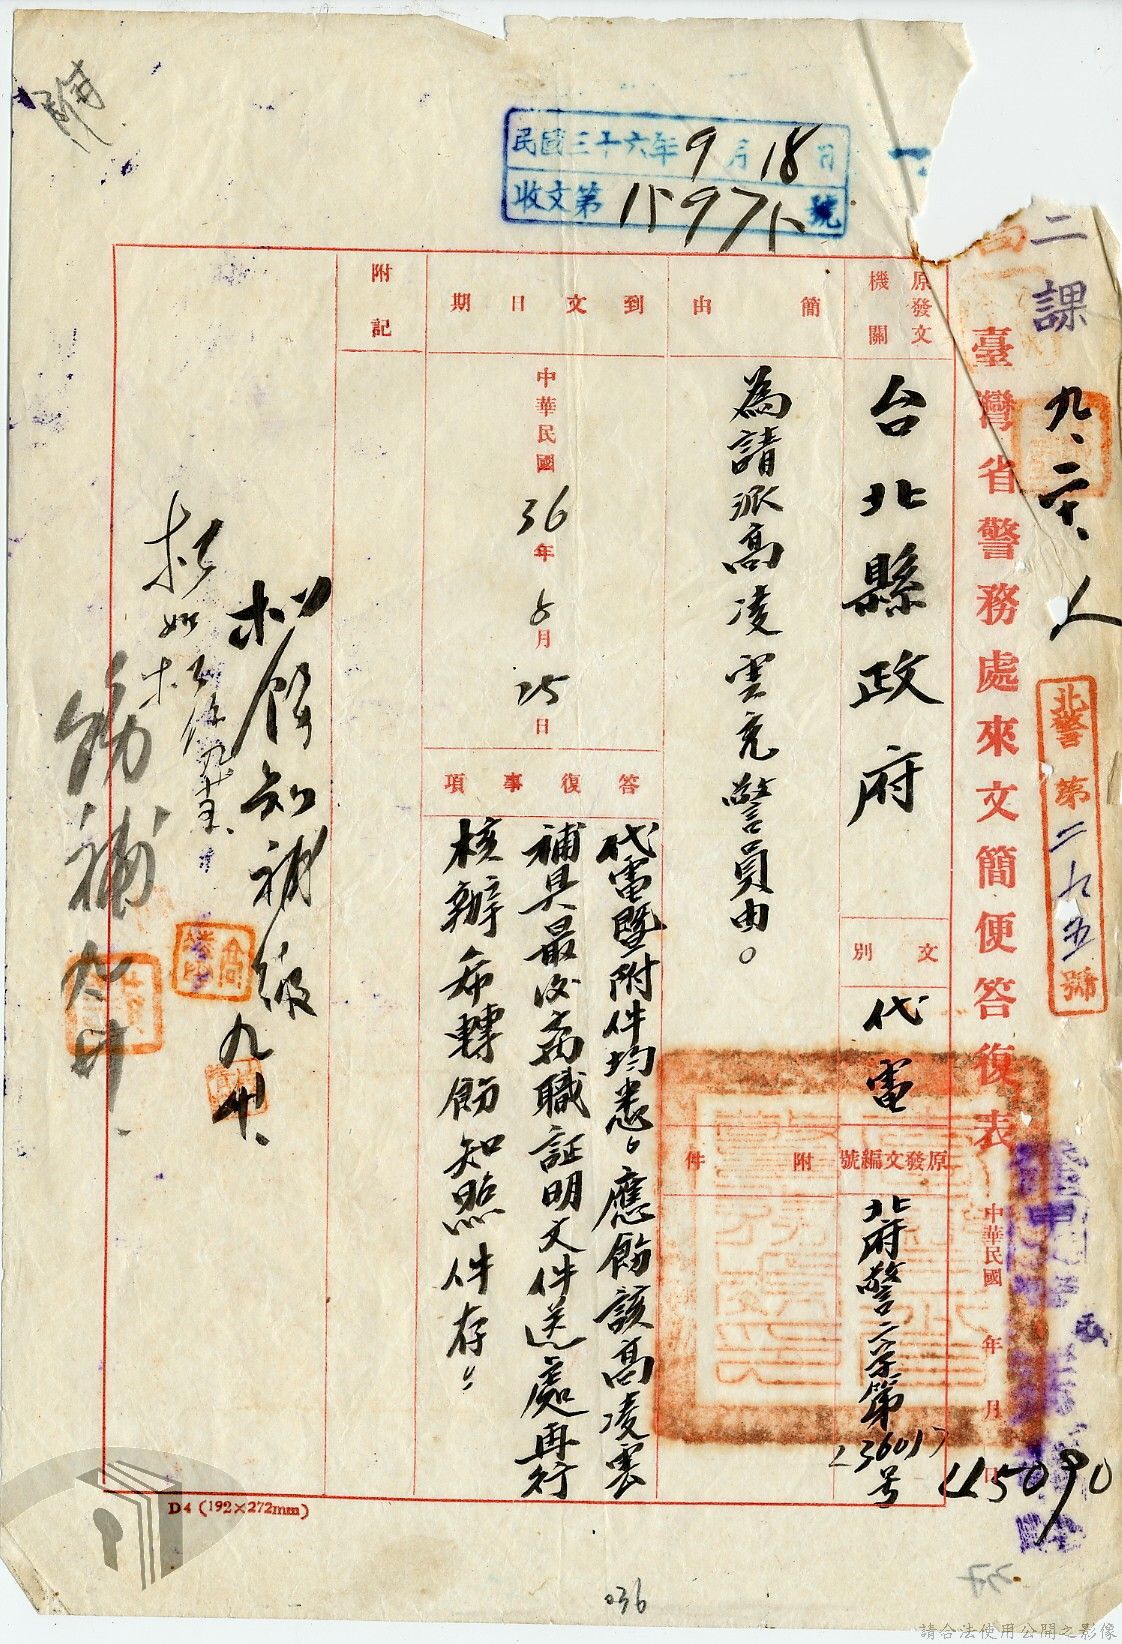 民國三十六年9月18日
收文第15975號
二課
九、二六、
北警第二九五號
臺灣省警務處來文簡便答復表
中華民國 年 月 日
45090
原發文機關
台北縣政府
文別
代電
原發文編號
北府警二字第
236017
号
簡由
為請派高凌雲充警員由。
附件
到文日期
中華民國36年8月25日
答復事項
代電暨附件均悉。應飭該高凌雲
補具最後離職証明文件送處再行
核辦希轉飭知照件存。
附記
擬飭知補繳
飭補
D4 (192×272mm)
036
請合法使用公開之影像